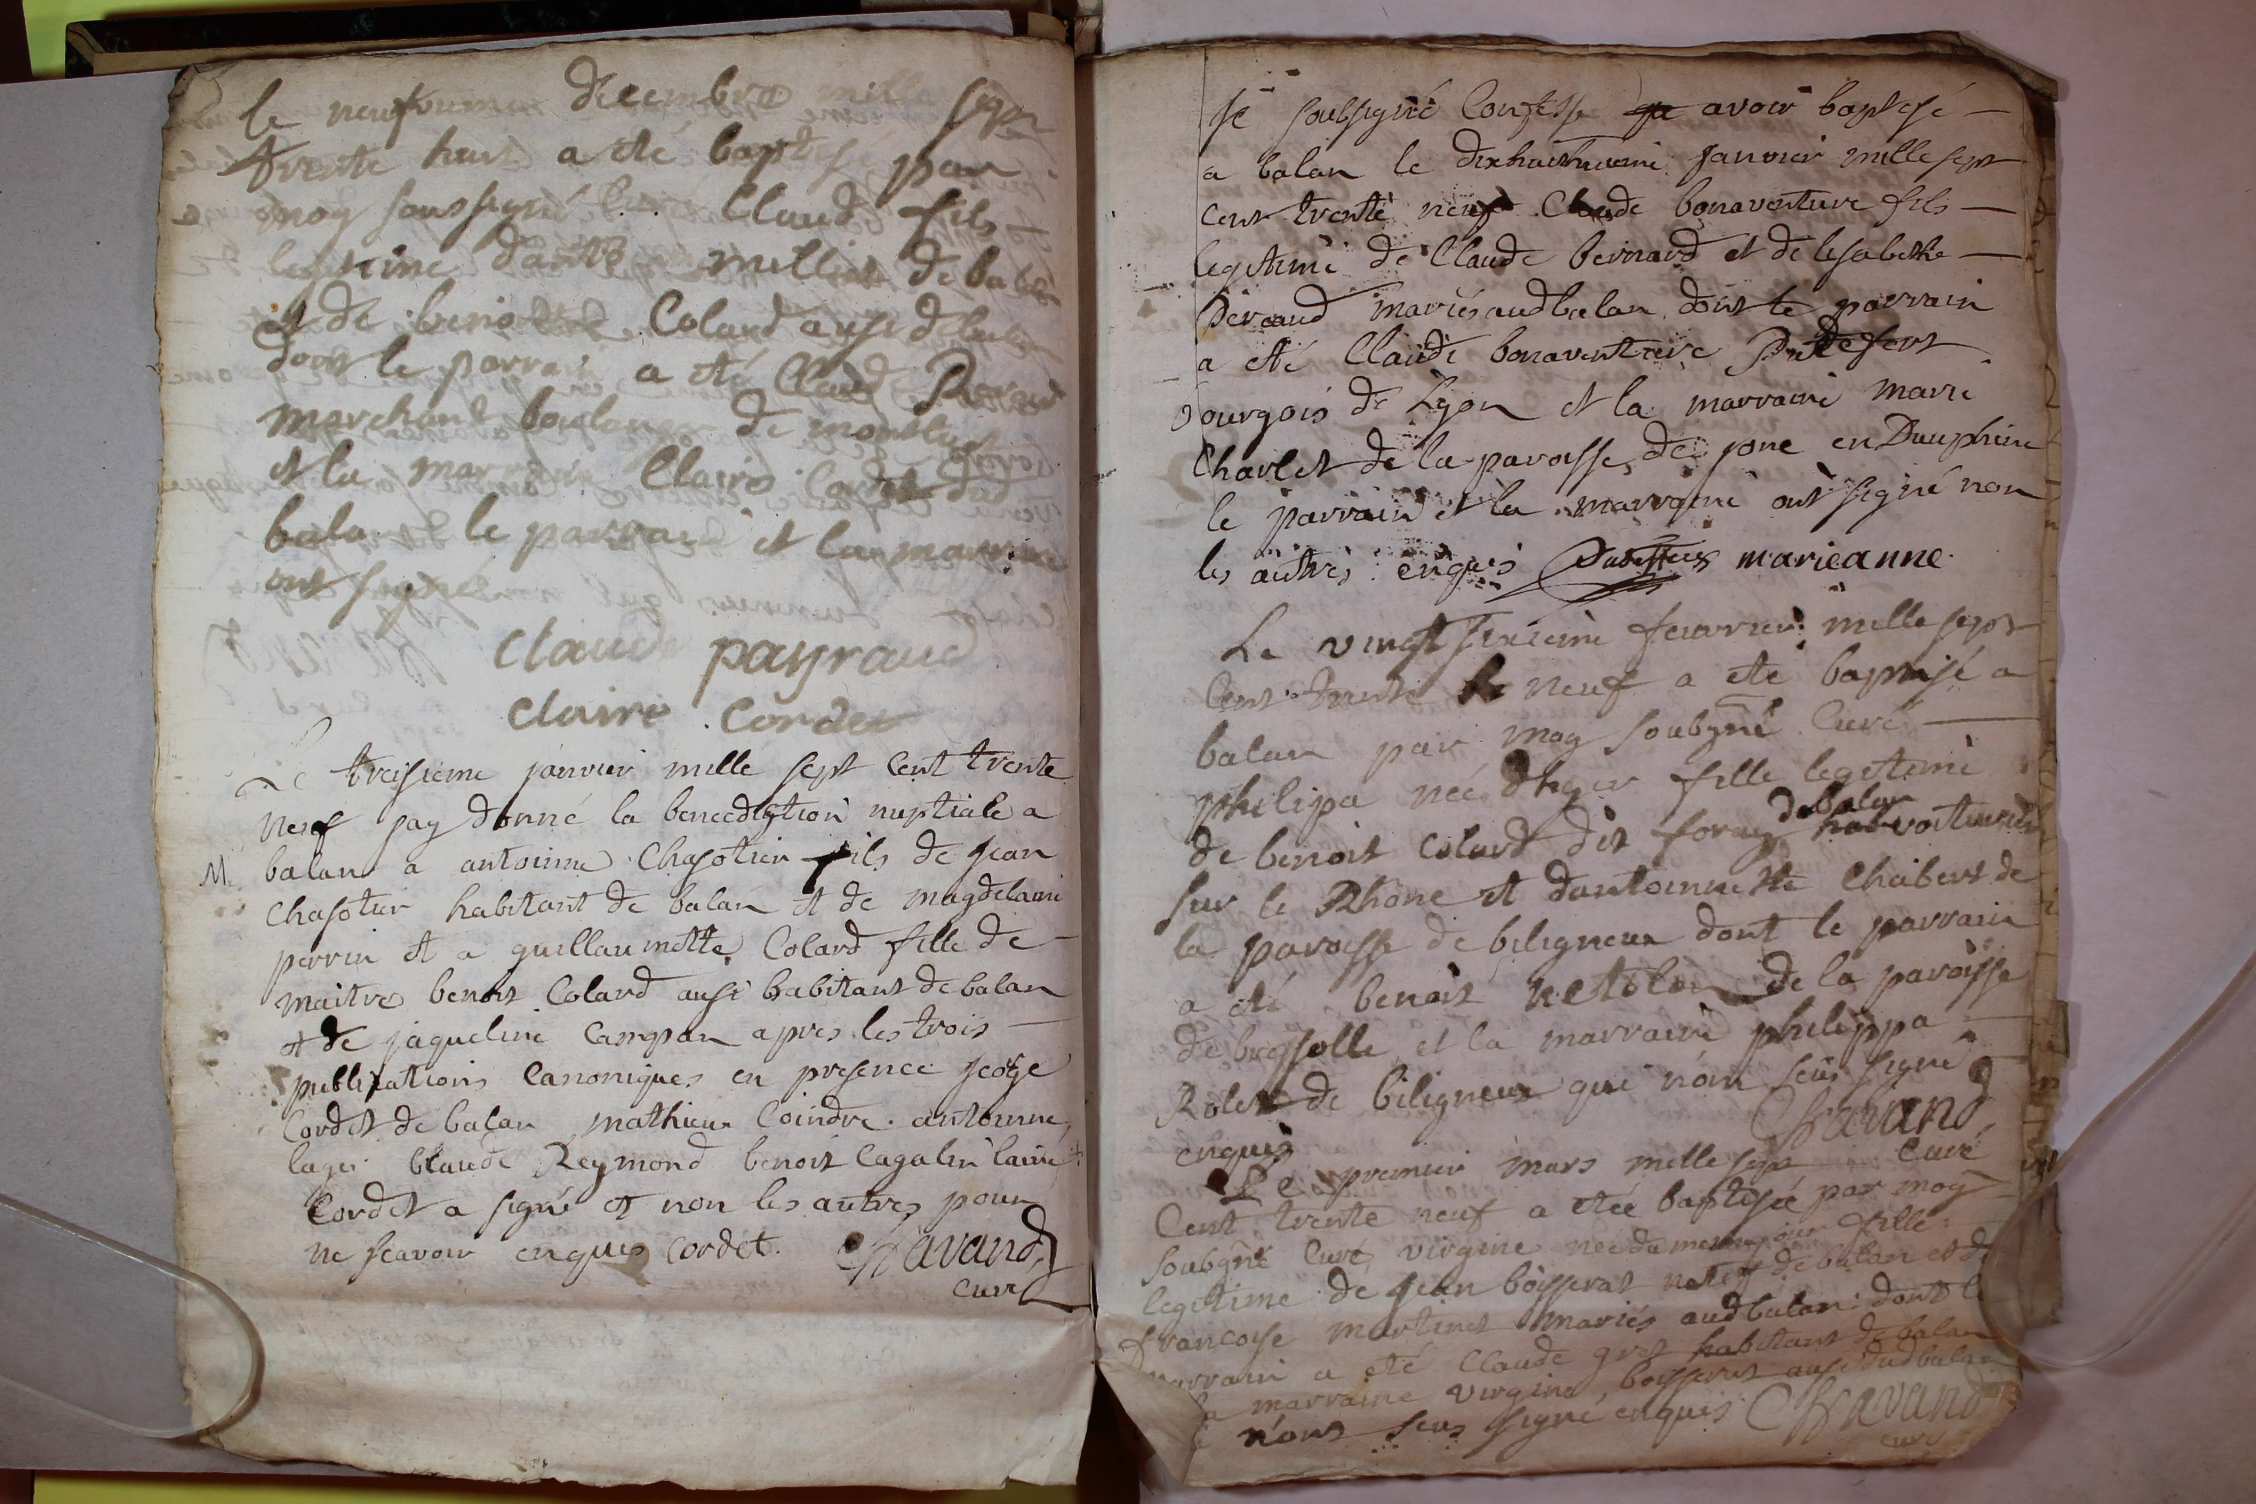 le neufvieme decembre mille sept
trente huit a eté baptisé par
moy soussigné Claud fils
legitime millet de balan
et de benoitte Colard aussi de balan
dont le parrain a eté Claud Peraud
marchand boulanger de montluel
et la marraine Claire Cordet dud
balan le parrain et la marraine
ont signé
claude payraud
claire cordet
Le treisieme janvier mille sept cent trente
neuf jay donné la benediction nuptiale a
M balan a antoinne Chasotier fils de jean
Chasotier habitant de balan et de magdelaine
perrin et a guillaumette Colard fille de
maitre benoit Colard ausi habitant de balan
et de jaqueline Campan apres les trois
publications Canoniques en presence george
Cordet de balan mathieu Coindre antoinne
lager claude Reymond benoit Cagalin laine
Cordet a signé et non les autres pour
ne scavoir enquis cordet. Chavand
curé
je soubsigné Confesse avoir baptisé
a balan le dixhuitvieme janvier mille sept
cent trente neuf Claude bonaventure fils
legitime de Claude bernard et de lisabethe
Péraud mariés aud balan dont le parrain
a eté Claude bonaventure
bourgois de Lyon et la marraine marie
Charlet de la paroisse de jone en Dauphine
le parrain et la marraine ont signé non
les autres enquis marieanne
Le vingt sixieme feuvrier mille sept
cent trente neuf a eté baptisé a
balan par moy soubgné Curé
philipa née dhyer fille legitime
de benoit Colard dit foray de balan voiturier
sur le Rhone et dantoinnette Chabert de
la paroisse de beligneux dont le parrain
a eté benoit de la paroisse
de bressolle et la marraine philippa
Rolet de biligneux qui nom seus signé
enquis Chavand
curé
Le premier mars mille sept
Cent trente neuf a eteé baptisée par moy
soubgné Curé virginie née du meme jour fille
legitime de jean boisserat de balan et de
francoise martinet mariés aud balan dont le
parrain a eté Claude gret habitant de balan
la marraine virginie boisserat ausi dud balan
n'ont seus signé enquis Chavand
curé